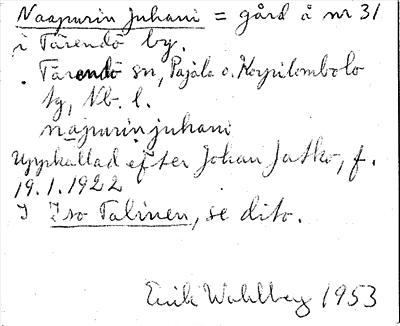 Naapurin Juhani = gård å nr 31
i Tärendö by.
. Tärendö sn, Pajala o. Korpilombolo
tg, Nb. l.
napurin juhani
Uppkallad efter Johan Jatko, f.
19.1.1922
I Iso Talinen, se dito.
Erik Wahlberg 1953